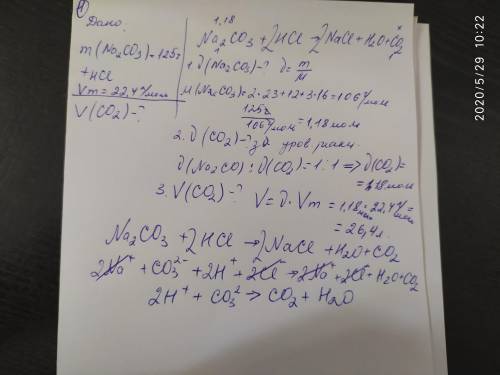 ①
Дано:
m(Na₂CO₃)=125г
+HCl
Vm=22,4л/моль
V(CO₂)-?
1,18 x
Na₂CO₃+2HCl→2NaCl+H₂O+CO₂
1
1. ϑ(Na₂CO₃)-? ϑ=m/M
M(Na₂CO₃)=2·23+12+3·16=106г/моль
125г/106г/моль=1,18моль
2. ϑ(CO₂)-? за
уров. реакц.
ϑ(Na₂CO):ϑ(CO₂)=1:1⇒ϑ(CO₂)=
=1,18моль
3. V(CO₂)-? V=ϑ·Vm=1,18моль·22,4л/моль=
=26,4л.
Na₂CO₃+2HCl→2NaCl+H₂O+CO₂
2Na⁺+CO₃²⁻+2H⁺+2Cl⁻→2Na⁺+2Cl⁻+H₂O+CO₂
2H⁺+CO₃²⁻→CO₂+H₂O
2020/5/29 10:22